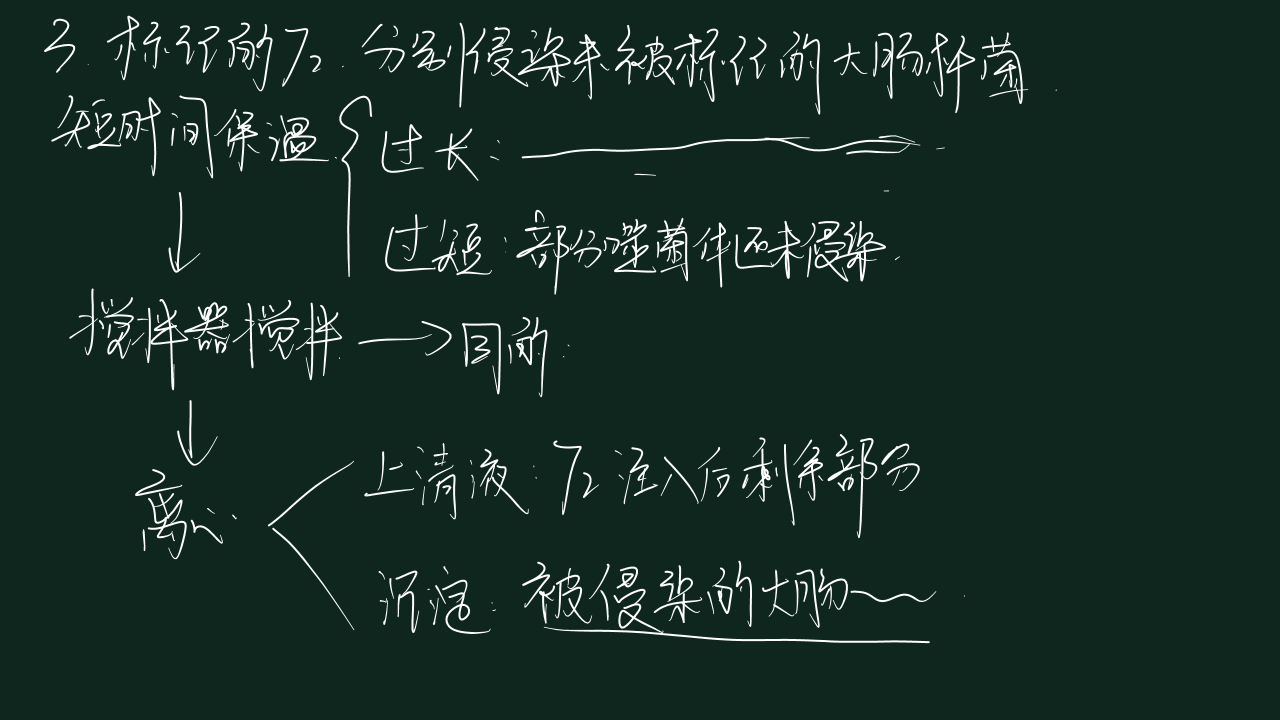 3. 标记的T2. 分别侵染未被标记的大肠杆菌.
短时间保温
过长:
过短: 部分噬菌体还未侵染.
搅拌器搅拌 → 目的:
离心
上清液: T2注入后剩余部分
沉淀: 被侵染的大肠~